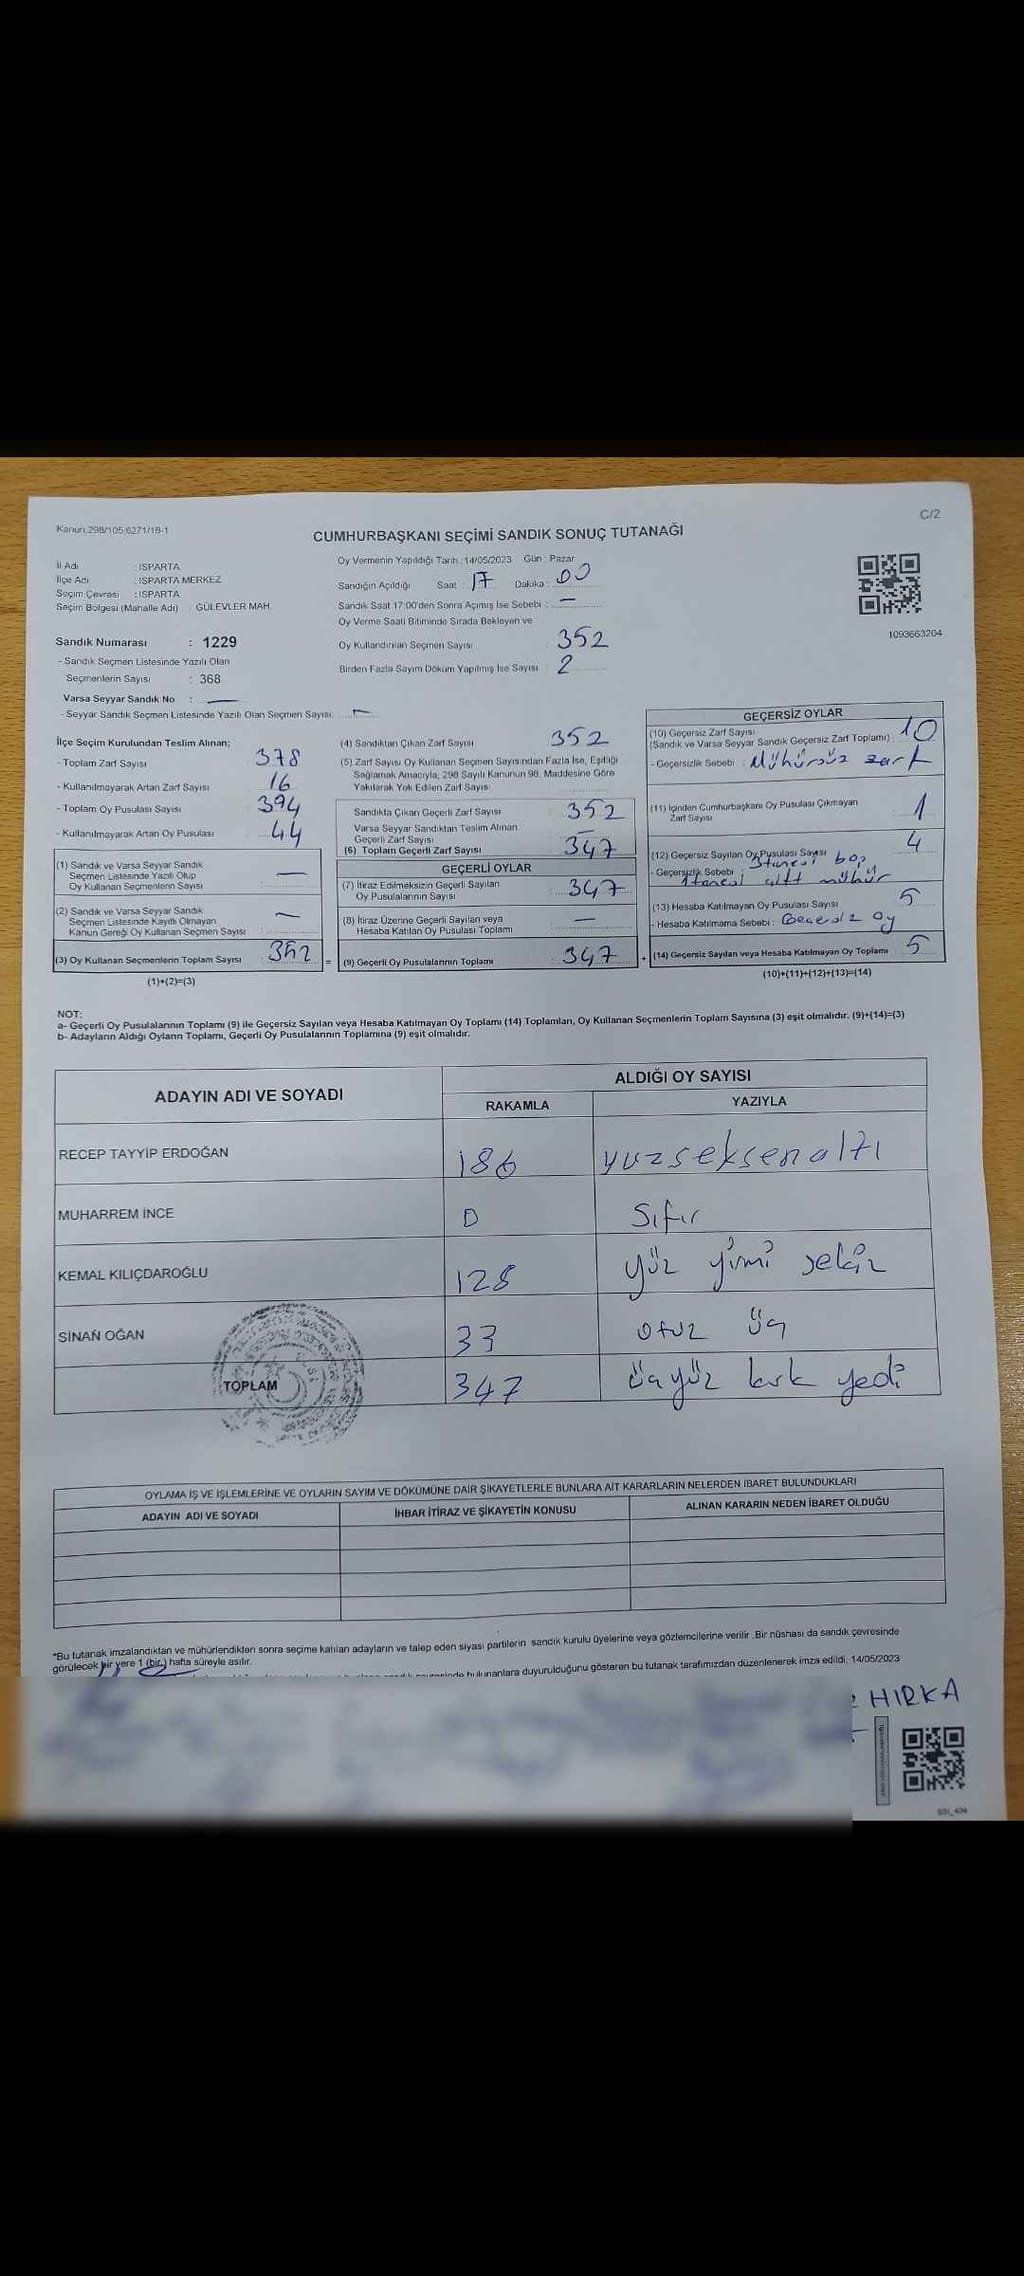 C/2
Kanun:298/105,6271/18-1
CUMHURBAŞKANI SEÇİMİ SANDIK SONUÇ TUTANAĞI
İl Adı : ISPARTA
İlçe Adı : ISPARTA MERKEZ
Seçim Çevresi : ISPARTA
Seçim Bölgesi (Mahalle Adı) : GÜLEVLER MAH.
Sandık Numarası : 1229
- Sandık Seçmen Listesinde Yazılı Olan
Seçmenlerin Sayısı : 368
Varsa Seyyar Sandık No : —
- Seyyar Sandık Seçmen Listesinde Yazılı Olan Seçmen Sayısı: —
Oy Vermenin Yapıldığı Tarih : 14/05/2023 Gün : Pazar
Sandığın Açıldığı Saat : 17 Dakika : 00
Sandık Saat 17:00'den Sonra Açımış İse Sebebi : —
Oy Verme Saati Bitiminde Sırada Bekleyen ve
Oy Kullandırılan Seçmen Sayısı : 352
Birden Fazla Sayım Döküm Yapılmış İse Sayısı : 2
1093663204
İlçe Seçim Kurulundan Teslim Alınan;
- Toplam Zarf Sayısı : 378
- Kullanılmayarak Artan Zarf Sayısı : 16
- Toplam Oy Pusulası Sayısı : 394
- Kullanılmayarak Artan Oy Pusulası : 44
(1) Sandık ve Varsa Seyyar Sandık
Seçmen Listesinde Yazılı Olup
Oy Kullanan Seçmenlerin Sayısı : —
(2) Sandık ve Varsa Seyyar Sandık
Seçmen Listesinde Kayıtlı Olmayan
Kanun Gereği Oy Kullanan Seçmen Sayısı : —
(3) Oy Kullanan Seçmenlerin Toplam Sayısı : 352 =
(1)+(2)=(3)
(4) Sandıktan Çıkan Zarf Sayısı : 352
(5) Zarf Sayısı Oy Kullanan Seçmen Sayısından Fazla İse, Eşitliği
Sağlamak Amacıyla, 298 Sayılı Kanunun 98. Maddesine Göre
Yakılarak Yok Edilen Zarf Sayısı :
Sandıkta Çıkan Geçerli Zarf Sayısı : 352
Varsa Seyyar Sandıktan Teslim Alınan
Geçerli Zarf Sayısı : —
(6) Toplam Geçerli Zarf Sayısı : 347
GEÇERLİ OYLAR
(7) İtiraz Edilmeksizin Geçerli Sayılan
Oy Pusulalarının Sayısı : 347
(8) İtiraz Üzerine Geçerli Sayılan veya
Hesaba Katılan Oy Pusulası Toplamı : —
(9) Geçerli Oy Pusulalarının Toplamı : 347 +
GEÇERSİZ OYLAR
(10) Geçersiz Zarf Sayısı
(Sandık ve Varsa Seyyar Sandık Geçersiz Zarf Toplamı) : 10
- Geçersizlik Sebebi : Mühürsüz zarf
(11) İçinden Cumhurbaşkanı Oy Pusulası Çıkmayan
Zarf Sayısı : 1
(12) Geçersiz Sayılan Oy Pusulası Sayısı : 4
- Geçersizlik Sebebi : 3tanesi boş
1tanesi çift mühür
(13) Hesaba Katılmayan Oy Pusulası Sayısı : 5
- Hesaba Katılmama Sebebi : Geçersiz oy
(14) Geçersiz Sayılan veya Hesaba Katılmayan Oy Toplamı : 5
(10)+(11)+(12)+(13)=(14)
NOT:
a- Geçerli Oy Pusulalarının Toplamı (9) ile Geçersiz Sayılan veya Hesaba Katılmayan Oy Toplamı (14) Toplamları, Oy Kullanan Seçmenlerin Toplam Sayısına (3) eşit olmalıdır. (9)+(14)=(3)
b- Adayların Aldığı Oyların Toplamı, Geçerli Oy Pusulalarının Toplamına (9) eşit olmalıdır.
ADAYIN ADI VE SOYADI
ALDIĞI OY SAYISI
RAKAMLA YAZIYLA
RECEP TAYYİP ERDOĞAN 186 yuzseksenaltı
MUHARREM İNCE 0 Sıfır
KEMAL KILIÇDAROĞLU 128 yüz yirmi sekiz
SİNAN OĞAN 33 otuz üç
TOPLAM 347 üçyüz kırk yedi
OYLAMA İŞ VE İŞLEMLERİNE VE OYLARIN SAYIM VE DÖKÜMÜNE DAİR ŞİKAYETLERLE BUNLARA AİT KARARLARIN NELERDEN İBARET BULUNDUKLARI
ADAYIN ADI VE SOYADI İHBAR İTİRAZ VE ŞİKAYETİN KONUSU ALINAN KARARIN NEDEN İBARET OLDUĞU
*Bu tutanak imzalandıktan ve mühürlendikten sonra seçime katılan adayların ve talep eden siyasi partilerin sandık kurulu üyelerine veya gözlemcilerine verilir .Bir nüshası da sandık çevresinde
görülecek bir yere 1 (bir.) hafta süreyle asılır.
bulunanlara duyurulduğunu gösteren bu tutanak tarafımızdan düzenlenerek imza edildi. 14/05/2023
HIRKA